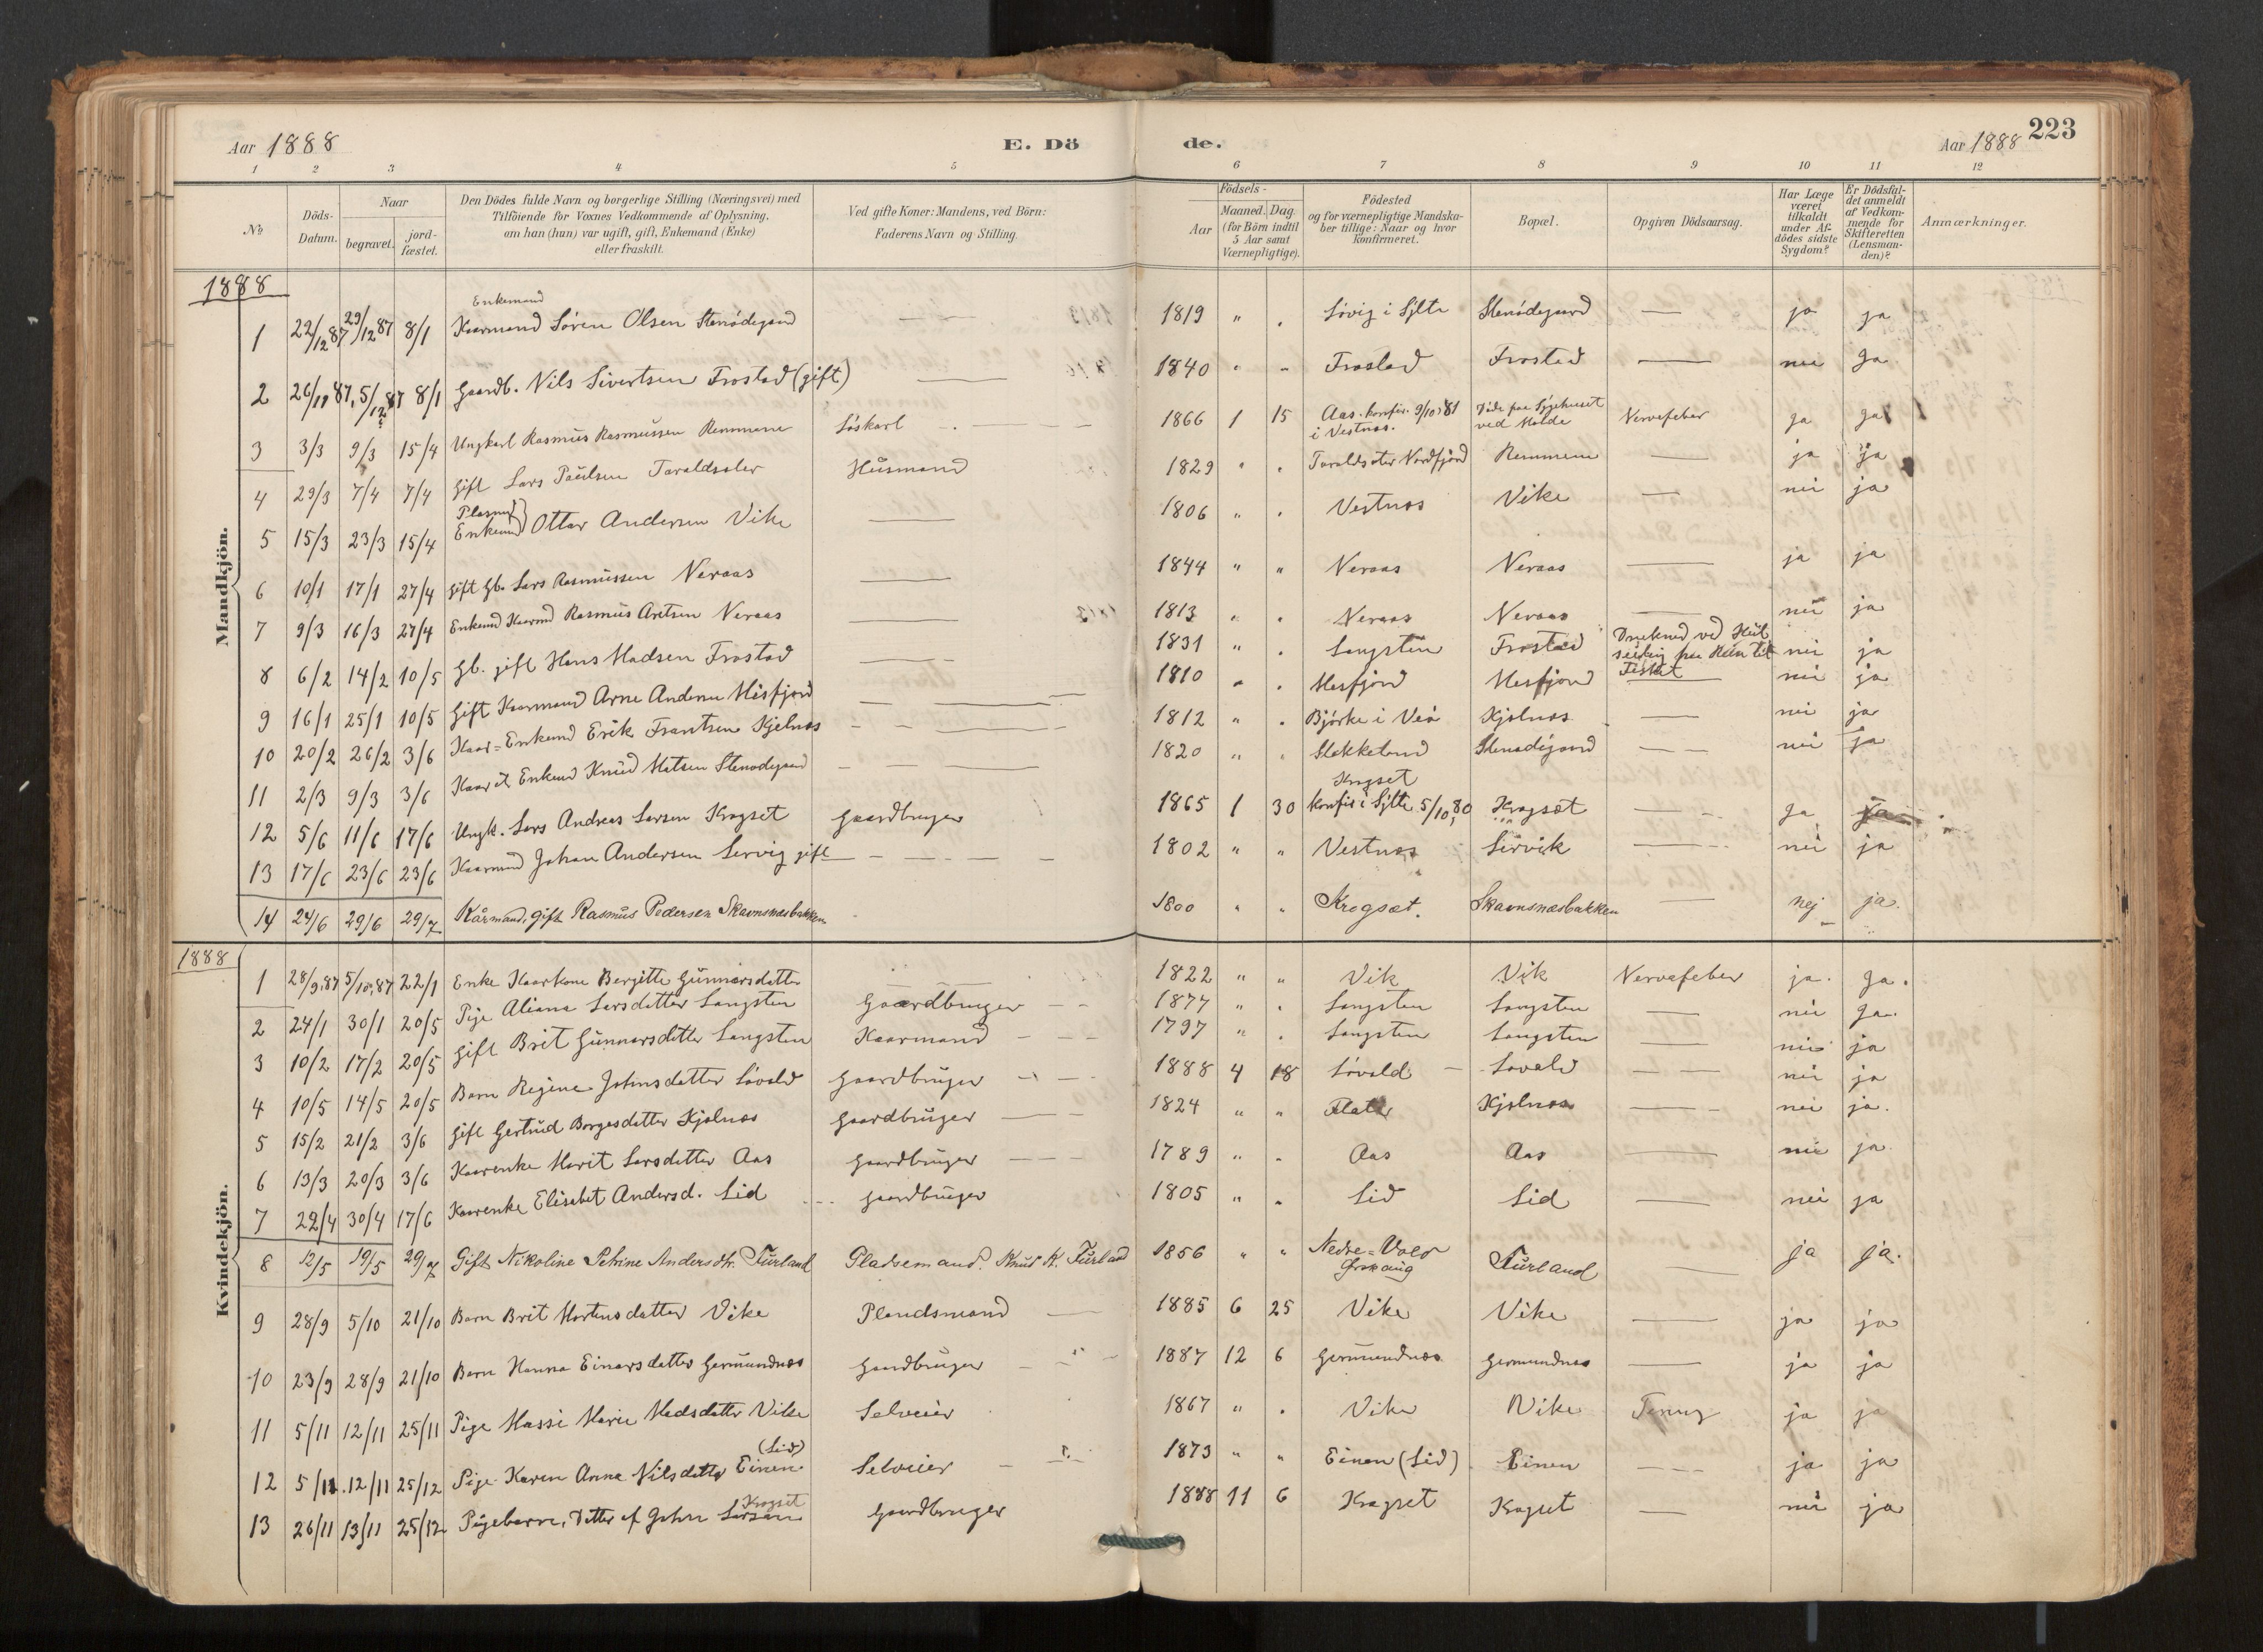 Aar 1888 E. Dö de. Aar 1888 223
1 2 3 4 5 6 7 8 9 10 11 12
№
Döds-Datum.
Naar
begravet.
jord-fæstet.
Den Dödes fulde Navn og borgerlige Stilling (Næringsvei) med
Tilföiende for Voxnes Vedkommende af Oplysning,
om han (hun) var ugift, gift, Enkemand (Enke)
eller fraskilt.
Ved gifte Koner: Mandens, ved Börn:
Faderens Navn og Stilling.
Födsels-
Aar
Maaned. Dag
(for Börn indtil
5 Aar samt
Værnepligtige).
Födested
og for værnepligtige Mandska-
ber tillige: Naar og hvor
konfirmeret.
Bopæl.
Opgiven Dödsaarsag.
Har Læge
været
tilkaldt
under Af-
dödes sidste
Sygdom?
Er Dödsfal-
det anmeldt
af Vedkom-
mende for
Skifteretten
(Lensman-
den)?
Anmærkninger.
1888
Mandkjön.
Enkemand
1 22/12 87 29/12 87 8/1 Kaarmand Sören Olsen Stenödegaard — 1819 " " Sövig i Sylte Stenödegaard — ja ja
2 26/11 87, 5/12 87 8/1 Gaardb. Nils Sivertsen Frostad (gift) — 1840 " " Frostad Frostad — nei Ja
3 3/3 9/3 15/4 Ungkarl Rasmus Rasmussen Remmem Löskarl — 1866 1 15 Aas. konfir. 9/10 81 i Vestnæs. Döde paa Sygehuset ved Molde Nervefeber Ja Ja
4 29/3 7/4 7/4 Gift Lars Paulsen Taraldsæter Husmand 1829 " " Taraldsæter Nordfjord Remmem — ja ja
5 15/3 23/3 15/4 Plasmd Enkemd Ottar Andersen Vike — 1806 " " Vestnæs Vike — nei ja
6 10/1 17/1 27/4 Gift Gb. Lars Rasmussen Neraas — 1844 " " Neraas Neraas — ja ja
7 9/3 16/3 27/4 Enkemd Kaarmd Rasmus Aretsen Neraas — 1813 " " Neraas Neraas — nei ja
8 6/2 14/2 10/5 Gb. gift Hans Madsen Frostad — 1831 " " Langsten Frostad Druknet ved Fisket nei ja
9 16/1 25/1 10/5 Gift Kaarmand Arne Andersen Misfjord — 1810 " " Misfjord Misfjord — nei ja
10 20/2 26/2 3/6 Kaar=Enkemd Erik Frantsen Kjelnæs — 1812 " " Björke i Veö Kjelnæs — nei ja
11 2/3 9/3 3/6 Enkemd Knud Matsen Stenödegaard — 1820 " " Slakkeland Stenödegaard — nei ja
12 5/6 11/6 17/6 Ungk. Lars Andreas Larsen Kragset Gaardbruger 1865 1 30 Kragset konfir i Sylte 5/10, 80 Kragset — Ja ja
13 17/6 23/6 23/6 Kaarmand Johan Andersen Servig gift — 1802 " " Vestnæs Servik — nei ja
14 24/6 29/6 29/7 Kårmand, gift Rasmus Pedersen Skavnsnæsbakken 1800 " " Krogsæt. Skavnsnæsbakken — nej ja.
1888
Kvindekjön.
1 28/9.87 5/10.87 22/1 Enke Kaarkone Bergitte Gunnarsdatter — 1822 " " Vik Vik Nervefeber ja. Ja.
2 24/1 30/1 20/5 Pige Aliana Larsdatter Langsten Gaardbruger — 1877 " " Langsten Langsten — nei Ja.
3 10/2 17/2 20/5 Gift Brit Gunnarsdatter Langsten Kaarmand — 1797 " " Langsten Langsten — nei ja
4 10/5 14/5 20/5 Barn Regine Johnsdatter Lövold Gaardbruger — 1888 4 18 Lövold Lovold — nei ja
5 15/2 21/2 3/6 Gift Gertrud Borgesdatter Kjelnæs Gaardbruger — 1824 " " Kjelnæs — nei ja.
6 13/3 20/3 3/6 Kaarenke Marit Larsdatter Aas Gaardbruger — 1789 " " Aas Aas — nei ja
7 22/4 30/4 17/6 Kaarenke Elisabet Andersd. Lid Gaardbruger 1805 " " Lid Lid — nei ja
8 12/5 19/5 29/7 Gift Nikoline Petrine Andersdtr. Furland Pladsemand. Knud K. Furland 1856 " " Nedre=Vold Furland — ja ja.
9 28/9 5/10 21/10 Barn Brit Mortensdatter Vike Plandsmand — 1885 6 25 Vike Vike — ja ja
10 23/9 28/9 21/10 Barn Hanna Einarsdatter Germundnæs Gaardbruger — 1887 12 6 Germundnæs Germundnæs — ja ja
11 5/11 12/11 25/11 Pige Massi Marie Madsdatter Vike Selveier 1867 " " Vike Vike Tæring ja ja
12 5/11. 12/11 25/12 Pige Karen Anna Nilsdatter Einen (Lid) Selveier — 1873 " " Einen (Lid) Einen — ja ja
13 26/11 13/11 25/12 Pigebarn, Datter af John Larsen Kragset Gaardbruger 1888 11 6 Kragset Kragset — nei ja